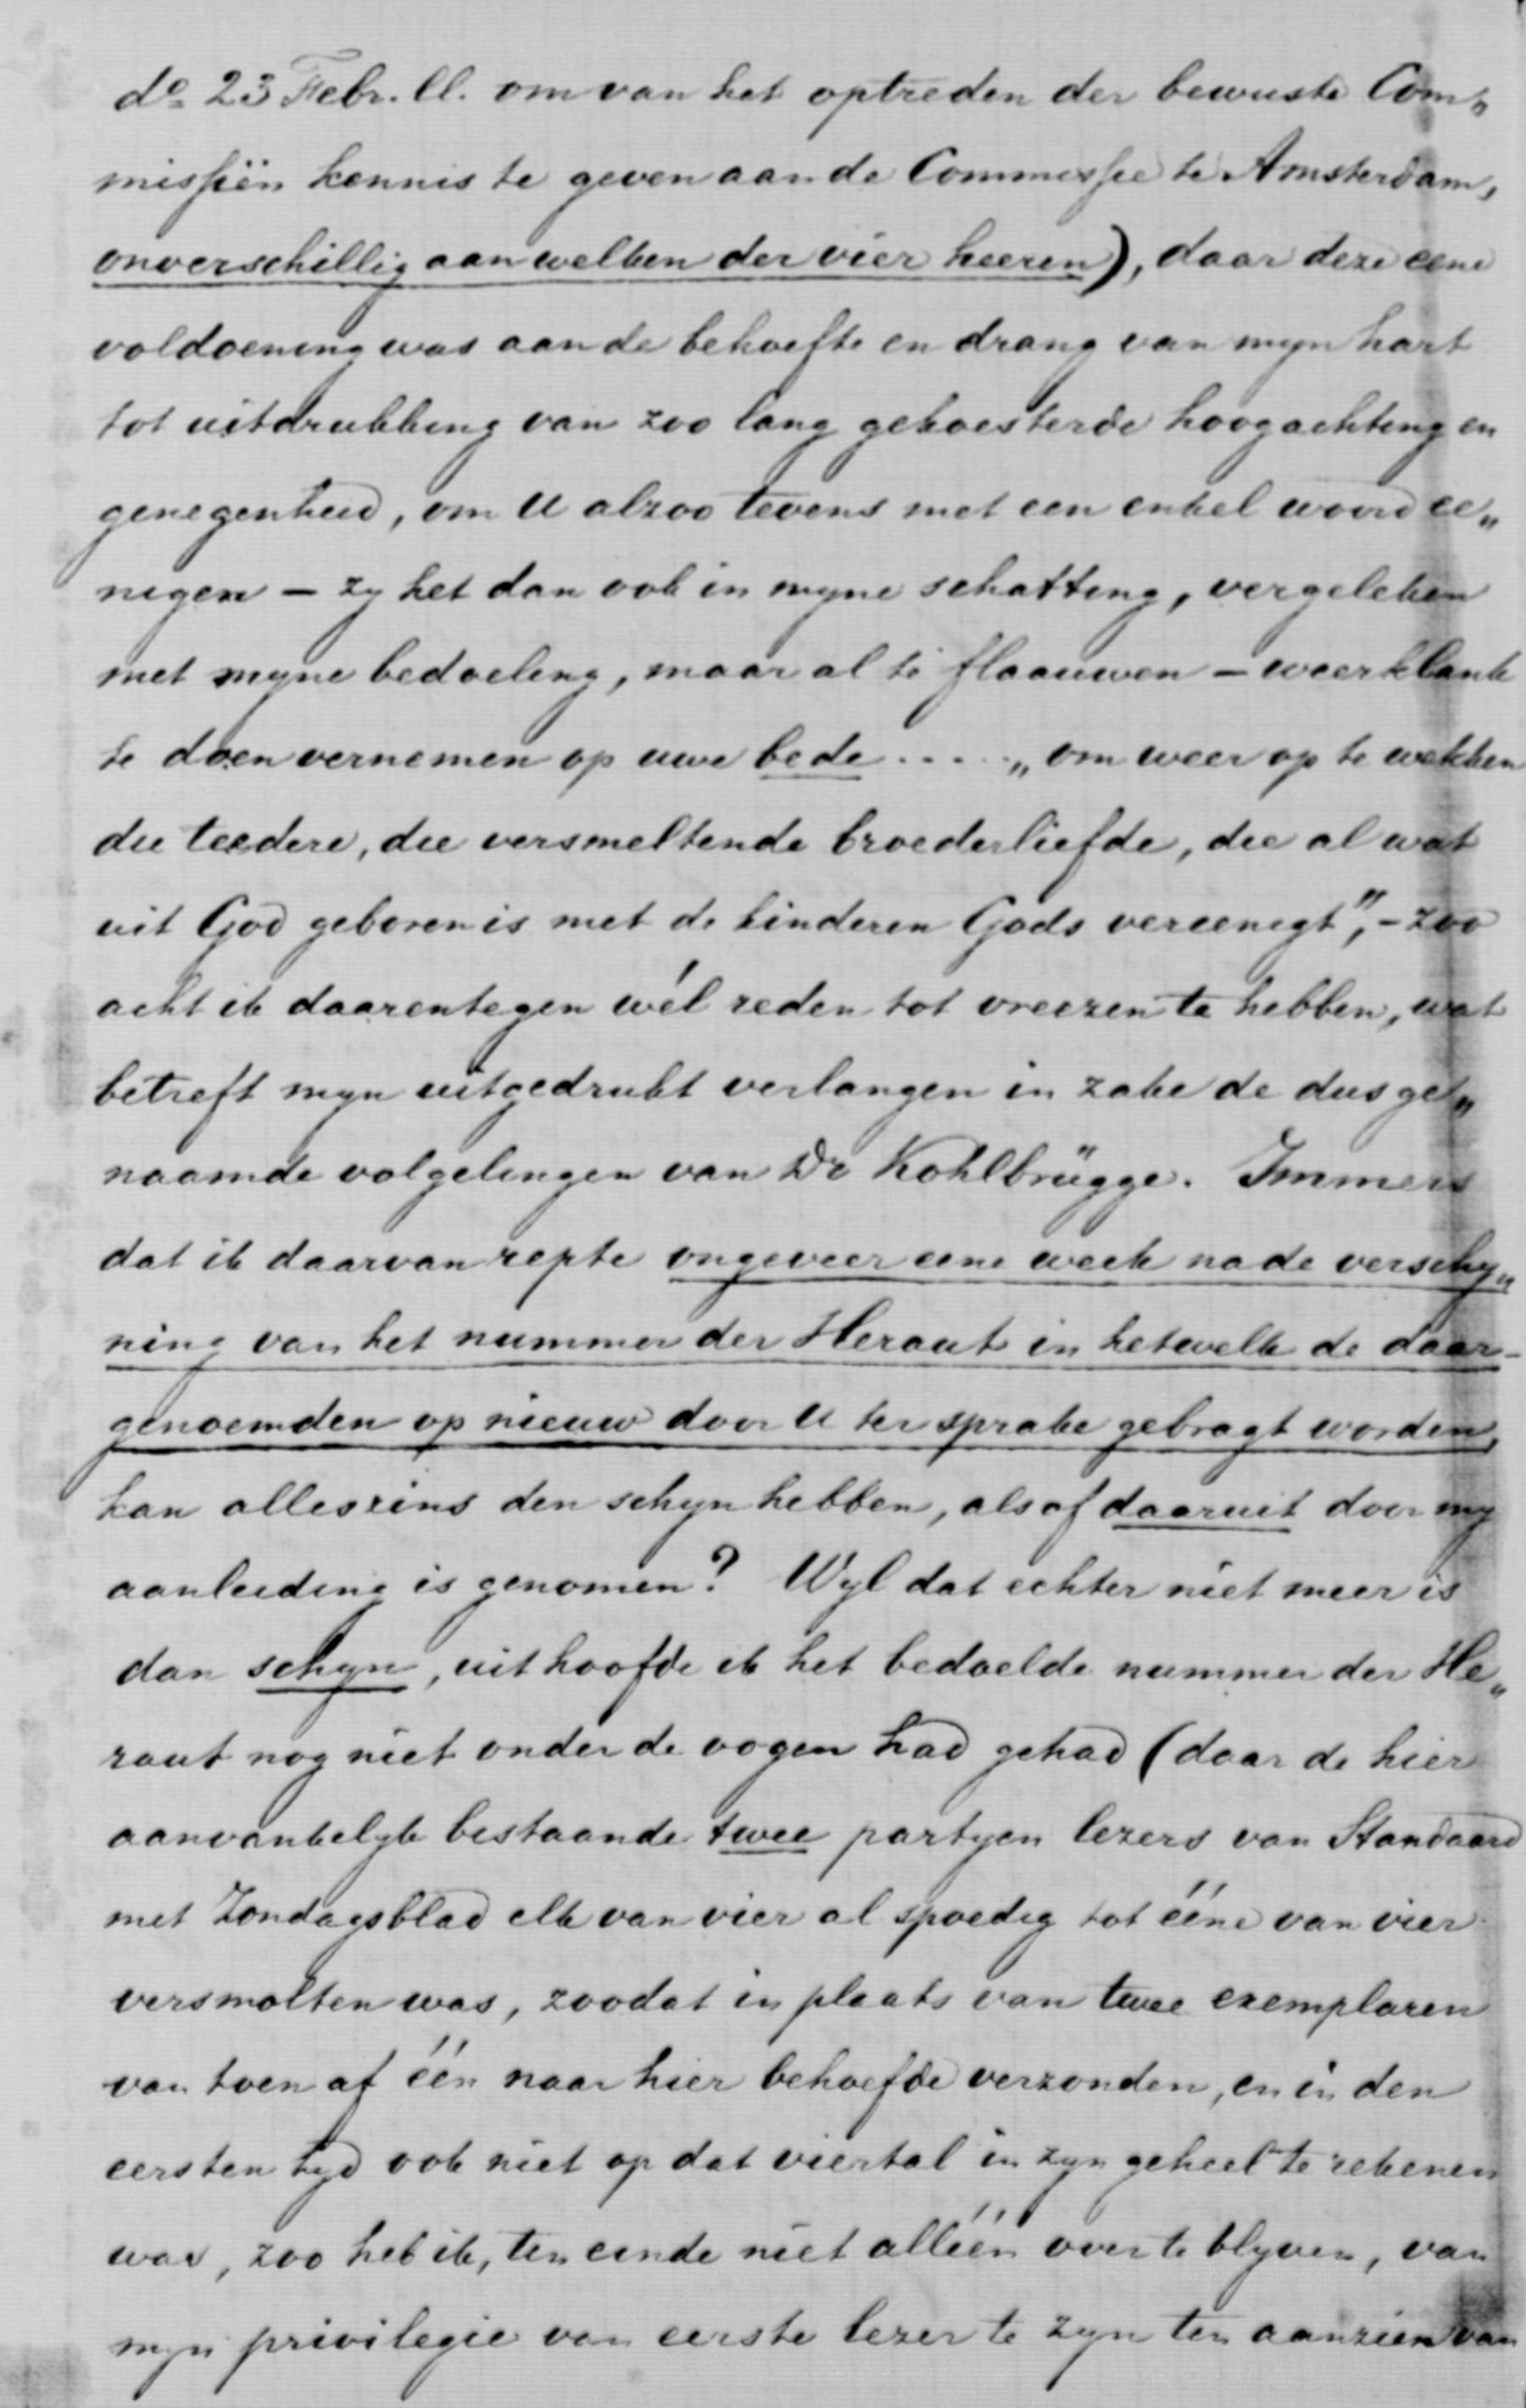 do 23 Febr. ll. om van het optreden der bewuste Com„
missiën kennis te geven aan de Commissie te Amsterdam,
onverschillig aan welken der vier heeren), daar deze eene
voldoening was aan de behoefte en drang van myn hart
tot uitdrukking van zoo lang gekoesterde hoogachting en
genegenheid, om U alzoo tevens met een enkel woord ee„
nigen – zy het dan ook in myne schatting, vergeleken
met myne bedoeling, maar al te flaauwen – weerklank
te doen vernemen op uwe bede .... „om weer op te wekken
die teedere, die versmeltende broederliefde, die al wat
uit God geboren is met de kinderen Gods vereenigt”, – zoo
acht ik daarentegen wél reden tot vreezen te hebben, wat
betreft myn uitgedrukt verlangen in zake de dus ge„
naamde volgelingen van Dr Kohlbrügge. Immers
dat ik daarvan repte ongeveer eene week na de verschy„
ning van het nummer der Heraut in hetwelk de daar-
genoemden op nieuw door U ter sprake gebragt worden,
kan alleszins den schyn hebben, alsof daaruit door my
aanleiding is genomen? Wyl dat echter niet meer is
dan schyn, uit hoofde ik het bedoelde nummer der He„
raut nog niet onder de oogen had gehad (daar de hier
aanvankelyk bestaande twee partyen lezers van Standaard
met Zondagsblad elk van vier al spoedig tot ééne van vier
versmolten was, zoodat in plaats van twee exemplaren
van toen af één naar hier behoefde verzonden, en in den
eersten tyd ook niet op dat viertal in zyn geheel te rekenen
was, zoo heb ik, ten einde niet alléén over te blyven, van
myn privilegie van eerste lezer te zyn ten aanzien van